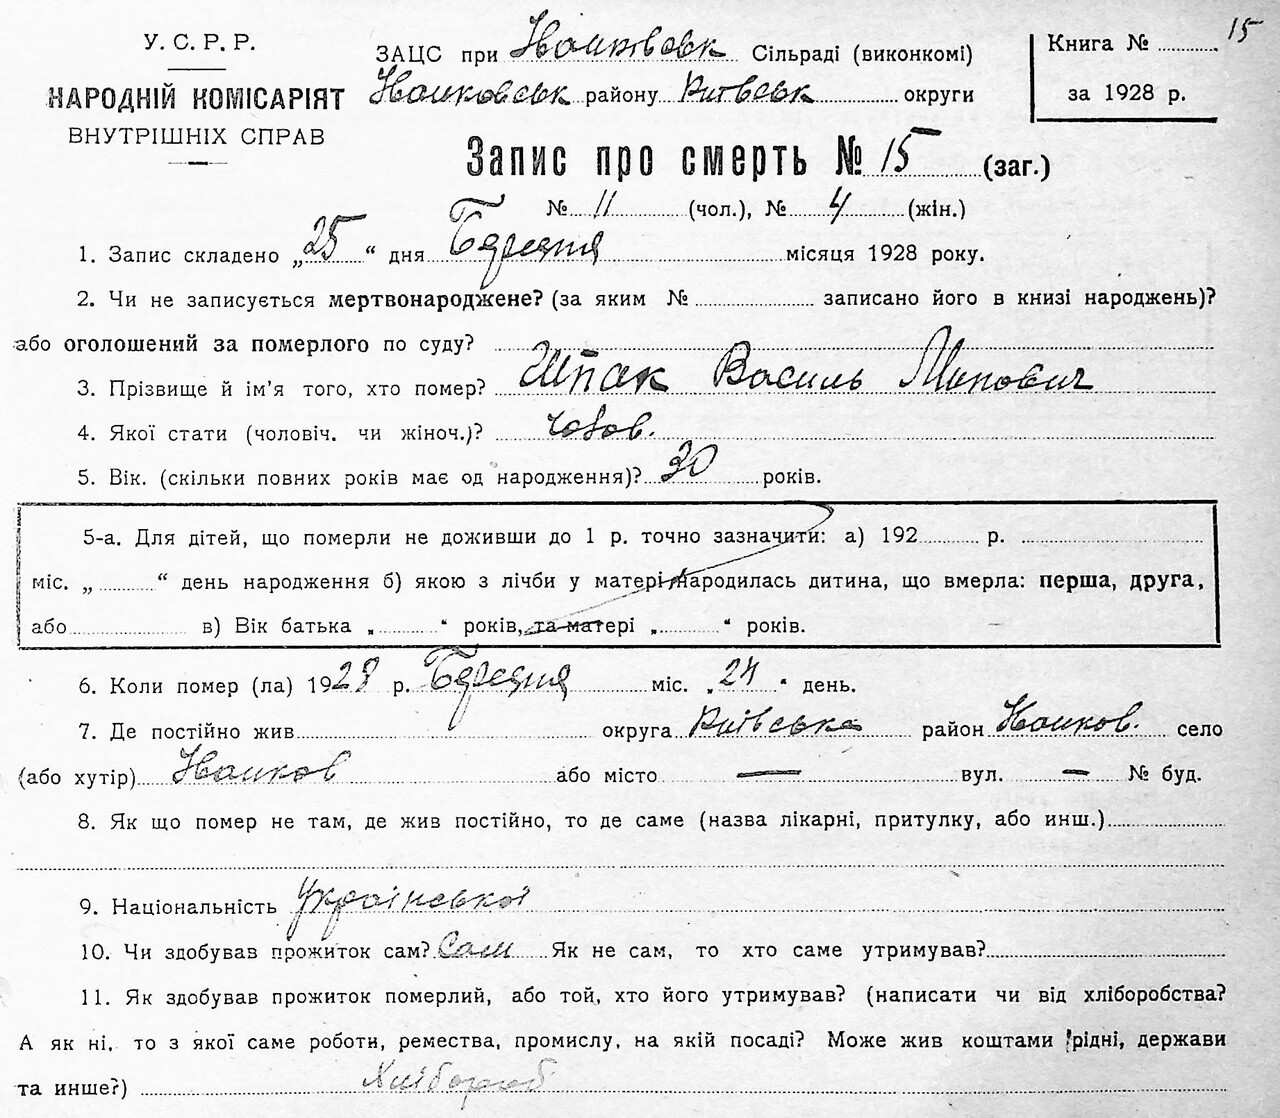 15
У. С. Р. Р.
НАРОДНІЙ КОМІСАРІЯТ
ВНУТРІШНІХ СПРАВ
ЗАЦС при Сільраді (виконкомі)
району Київськ округи
Книга №
за 1928 р.
Запис про смерть № 15 (заг.)
№ 11 (чол.), № 4 (жін.)
1. Запис складено „25“ дня Березня місяця 1928 року.
2. Чи не записується мертвонароджене? (за яким № записано його в книзі народжень)?
або оголошений за померлого по суду?
3. Прізвище й ім’я того, хто помер? Шпак Василь
4. Якої стати (чоловіч. чи жіноч.)? чолов.
5. Вік. (скільки повних років має од народження)? 30 років.
5-а. Для дітей, що померли не доживши до 1 р. точно зазначити: а) 192 р.
міс. „ “ день народження б) якою з лічби у матері народилась дитина, що вмерла: перша, друга,
або в) Вік батька „ “ років, та матері „ “ років.
6. Коли помер (ла) 1928 р. Березня міс. „24“ день.
7. Де постійно жив округа Київська район село
(або хутір) або місто — вул. — № буд.
8. Як що помер не там, де жив постійно, то де саме (назва лікарні, притулку, або инш.)
9. Національність Української
10. Чи здобував прожиток сам? Сам Як не сам, то хто саме утримував?
11. Як здобував прожиток померлий, або той, хто його утримував? (написати чи від хліборобства?
А як ні, то з якої саме роботи, ремества, промислу, на якій посаді? Може жив коштами рідні, держави
та инше?) Хлібороб